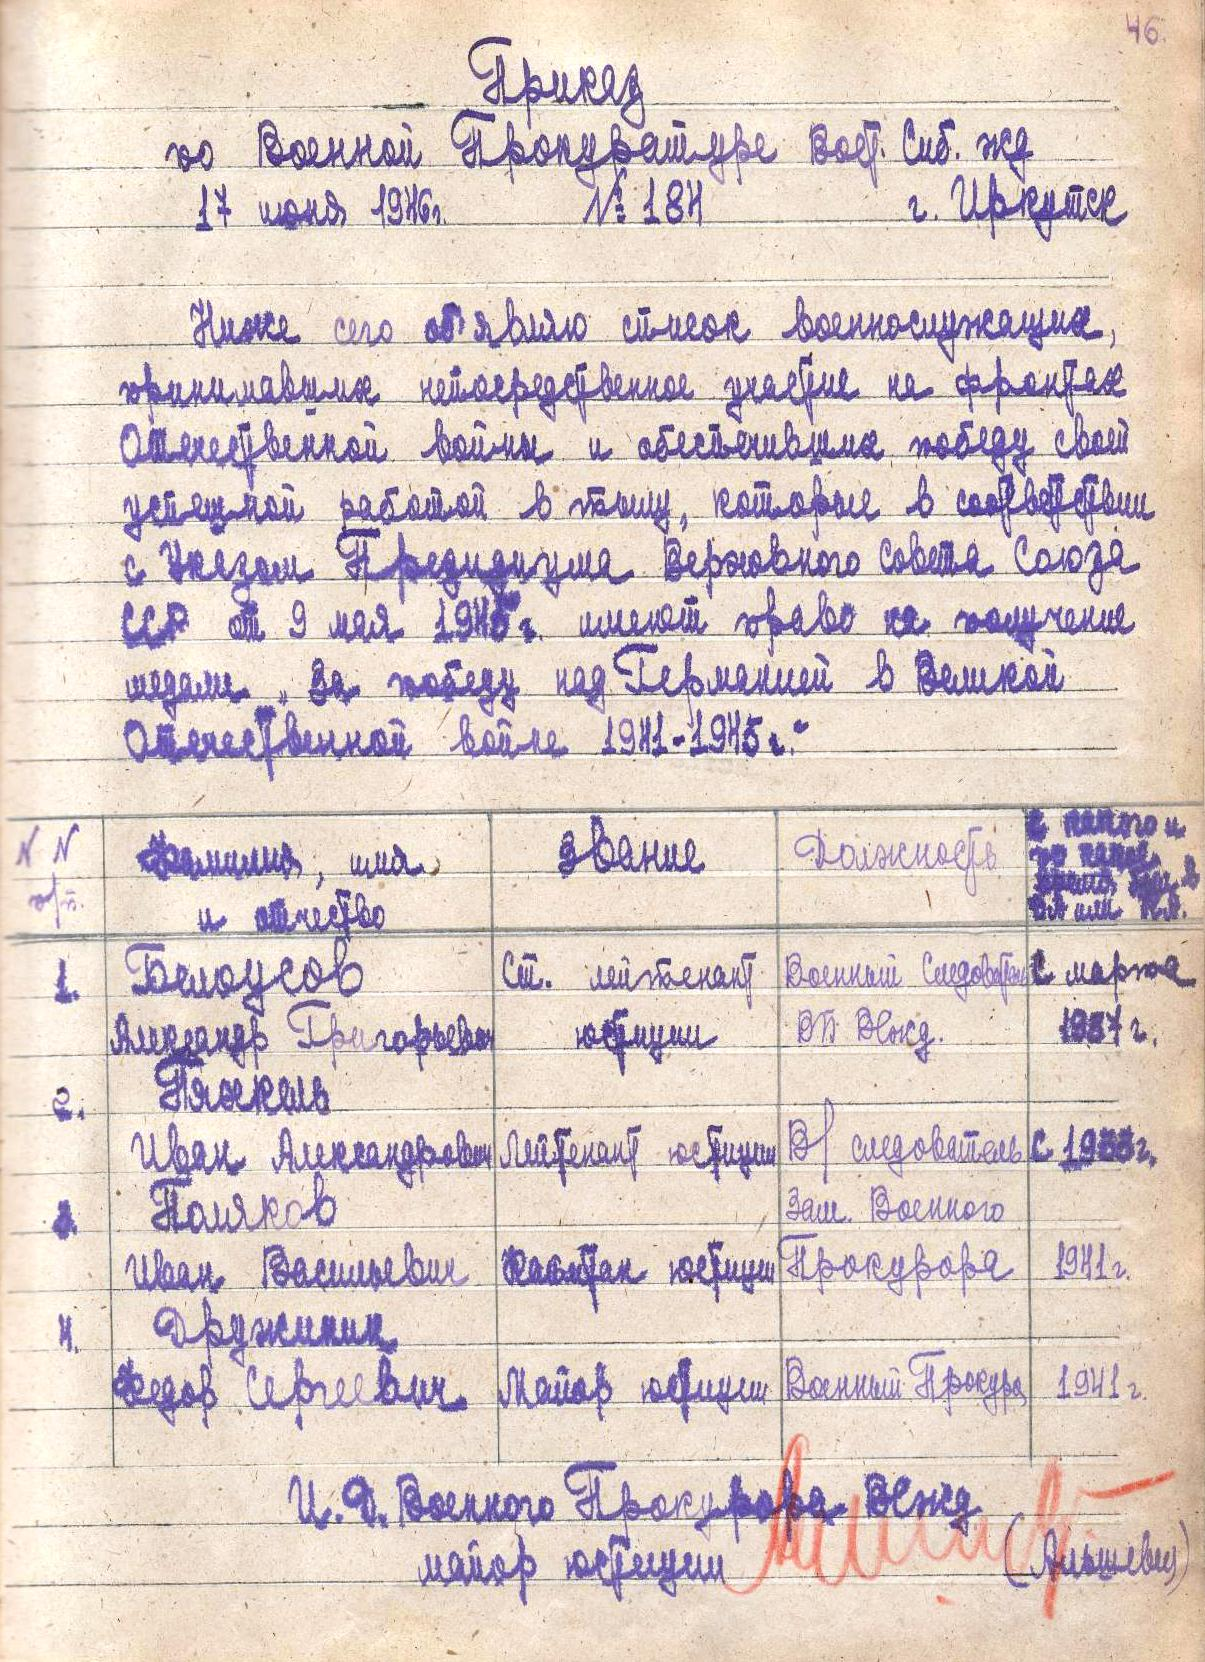 46.
Приказ
по Военной Прокуратуре Вост. Сиб. жд
17 июня 1946г. № 184 г. Иркутск
Ниже сего об'являю список военнослужащих,
принимавших непосредственное участие на фронтах
Отечественной войны и обеспечивших победу своей
успешной работой в тылу, которые в соответствии
с Указом Президиума Верховного Совета Союза
ССР от 9 мая 1945г. имеют право на получение
медали „За победу над Германией в Великой
Отечественной войне 1941-1945г."
N N п/п. Фамилия, имя и отчество Звание Должность С какого и по какое время в
1. Белоусов Ст. лейтенант Военный Следователь С марта
Александр Григорьевич юстиции ВП ВСжд. 1937г.
2. Пяжкель
Иван Александрович Лейтенант юстиции В/следователь С 1933г.
3. Поляков Зам. Военного
Иван Васильевич Капитан юстиции Прокурора 1941г.
4. Дружинин
Федор Сергеевич Майор юстиции Военный Прокурор 1941г.
И.Д. Военного Прокурора ВСжд
майор юстиции (Альшевич)